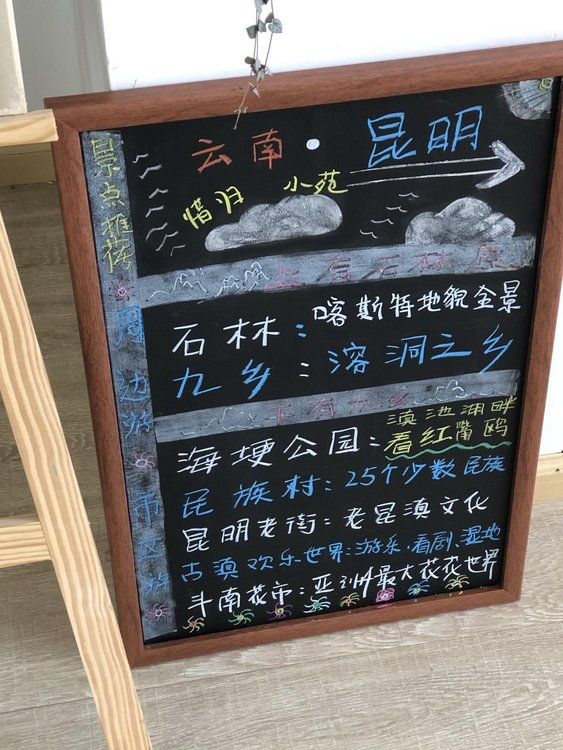 云南·昆明
惜归 小苑
景点推荐
周边游
市区游
上有石林
石林：喀斯特地貌全景
九乡：溶洞之乡
下有九乡
海埂公园：滇池湖畔
看红嘴鸥
民族村：25个少数民族
昆明老街：老昆滇文化
古滇欢乐世界：游乐.看剧.湿地
斗南花市：亚洲最大花花世界